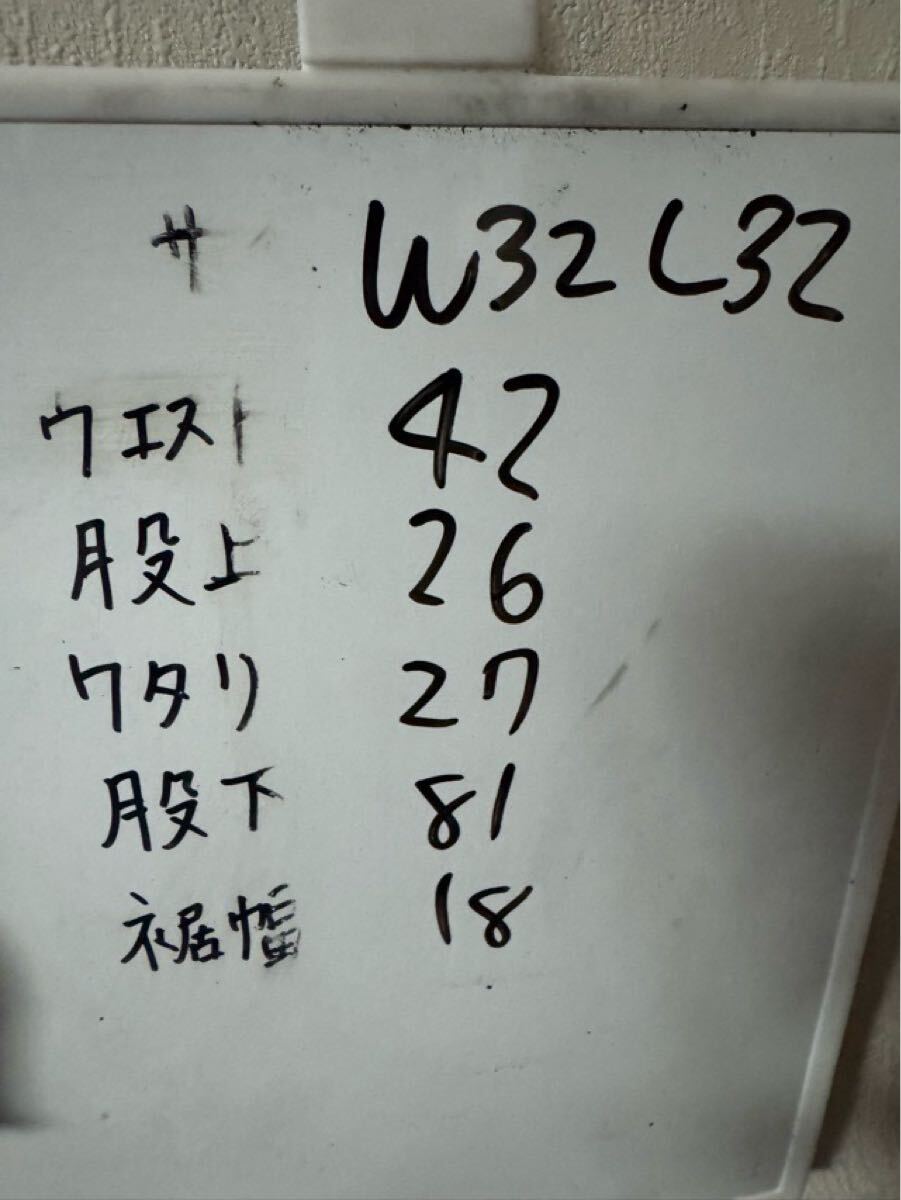 サ W32 L32
ウエスト 42
股上 26
ワタリ 27
股下 81
裾幅 18